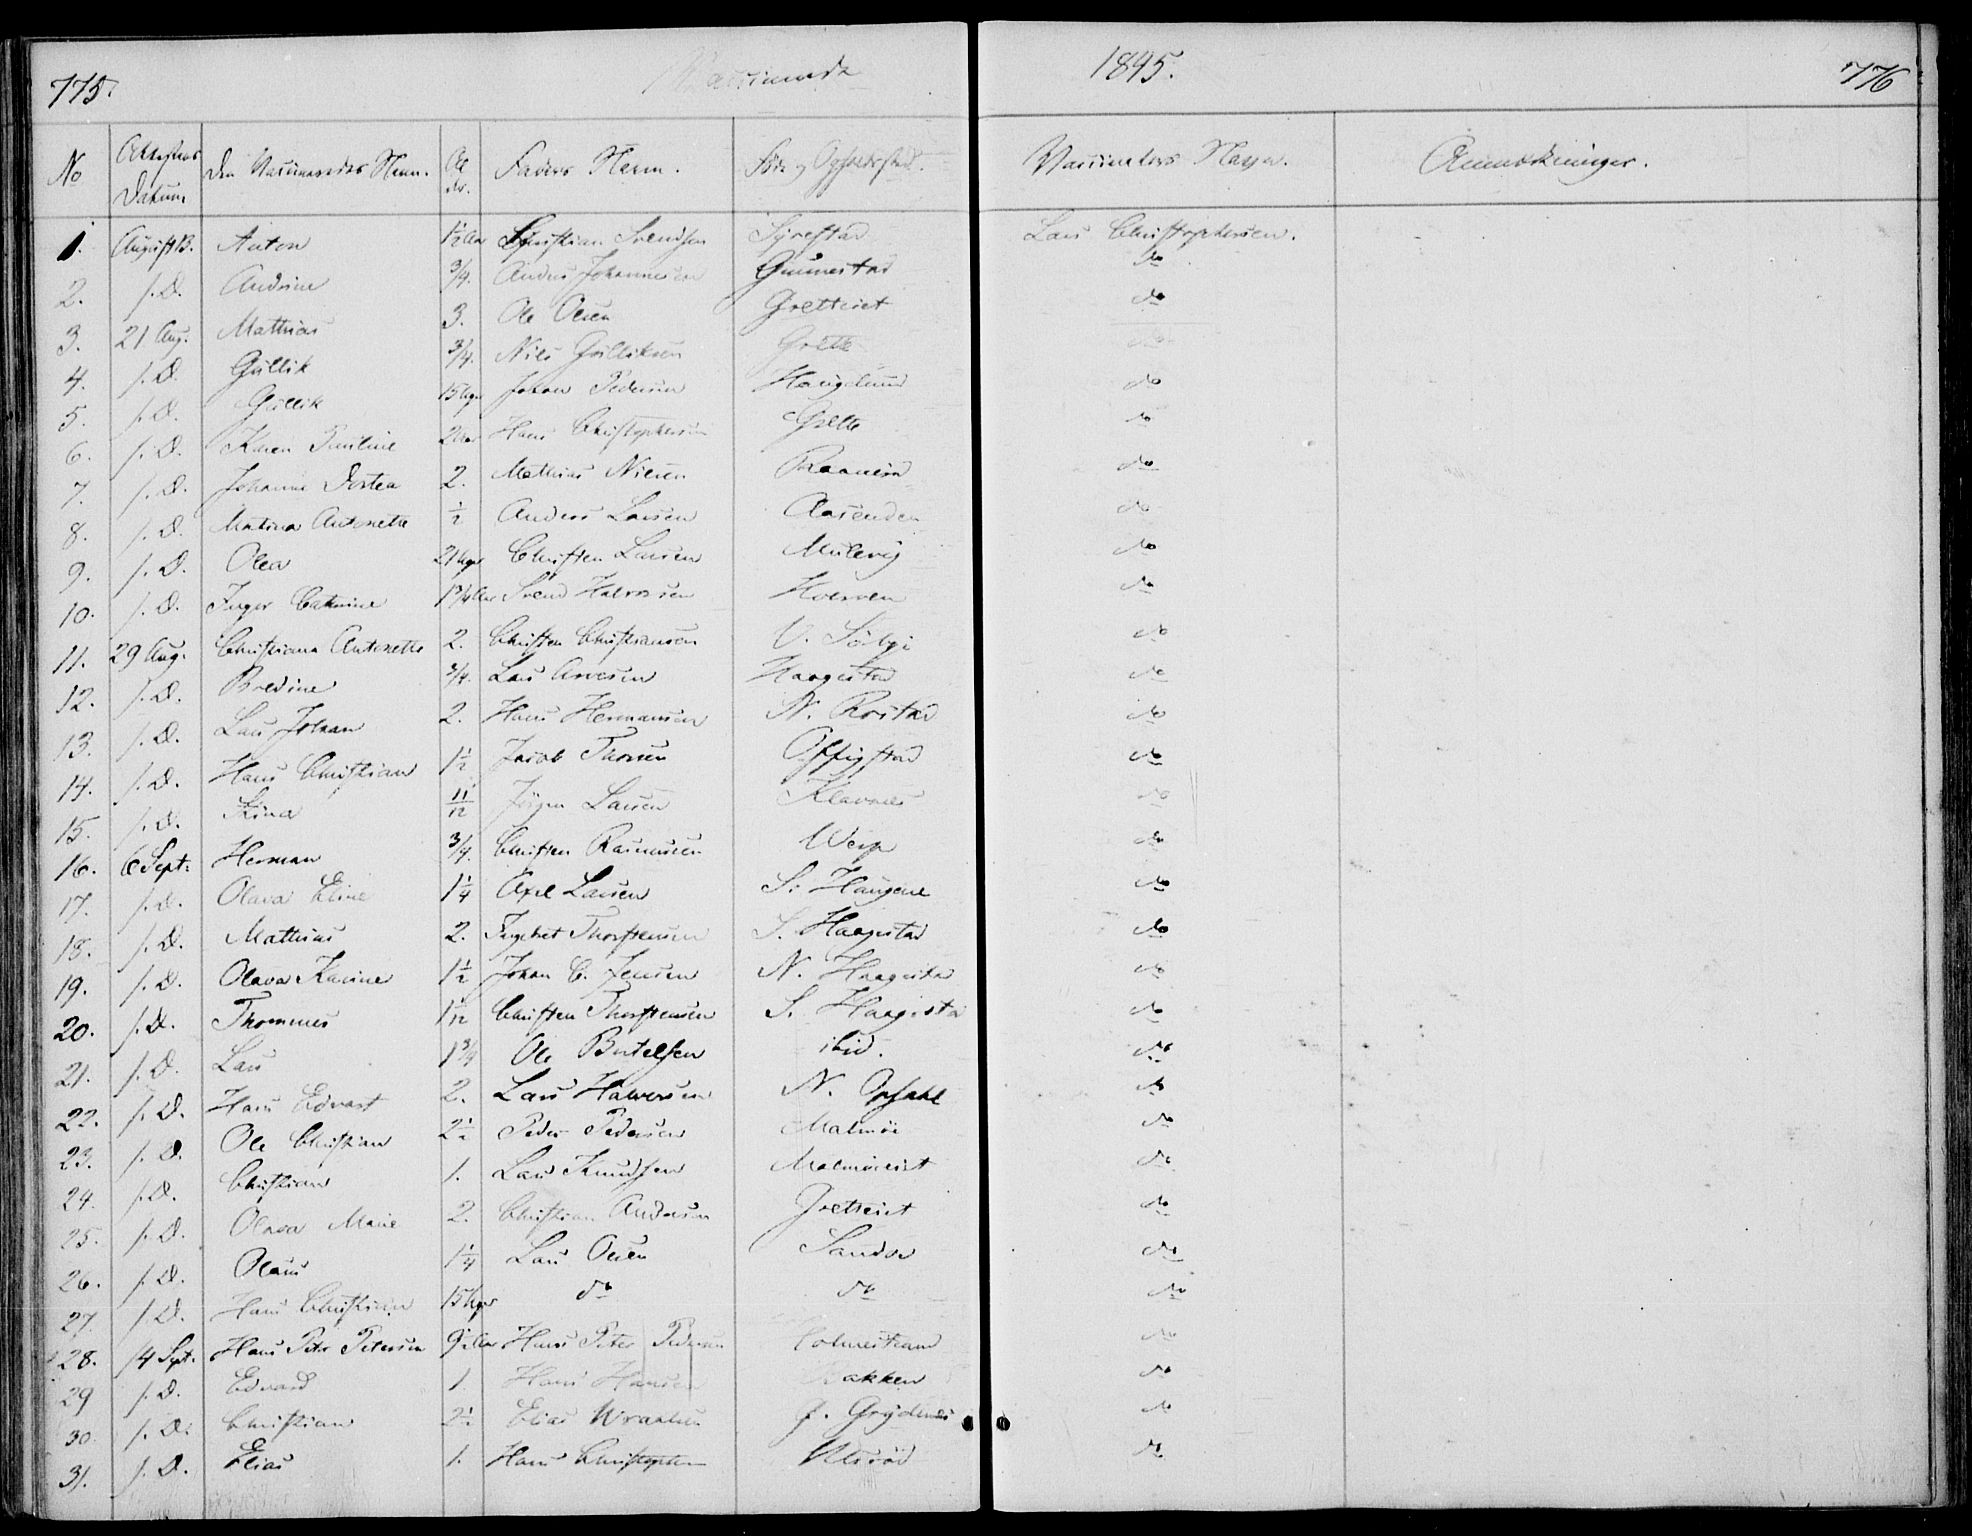 775. Vaccinerede 1845. 776
No Attestens Datum. Den Vaccineredes Navn. Alder. Faders Navn. Vaccinators Navn. Anmærkninger.
1. August 13. Anton 1½ Aar Christian Svendsen Syrestad Lars Christophersen.
2. s. D. Andrine 3/4. Anders Johannesen Gunnestad do
3. 21 Aug. Mathias 3. Ole Olsen Gretteiet do
4. s. D. Gullik 3/4. Niels Gulliksen Grette do
5. s. D. Gullik 15 Uger Johan Pedersen Haugelund do
6. s. D. Karen Pauline 2 Aar Hans Christophersen Grette do
7. s. D. Johanne Dortea 2. Mathias Nielsen Raanerød do
8. s. D. Matina Antonette ½ Anders Larsen Aasenden do
9. s. D. Olea 21 Uger Christen Larsen Mulevig do
10. s. D. Inger Cathrine 1 3/4 Aar Svend Halvorsen Hverven do
11. 29 Aug. Christiana Antonette 2. Christen Christiansen V. Sölyi do
12. s. D. Bredine 3/4. Lars Arvesen Haagestad do
13. s. D. Lars Johan 2. Hans Hermansen N. Rostad do
14. s. D. Hans Christian 1½ Jacob Thorsen Offigstad do
15. s. D. Stina 11/12 Jörgen Larsen Klavnes do
16. 6 Sept. Herman 3/4. Christen Rasmussen Weip do
17. s. D. Olava Eline 1¼ Axel Larsen S. Haugene do
18. s. D. Mathias 2. Ingebret Thorstensen S. Haagestad do
19. s. D. Olava Karine 1½ Johan C. Jensen N. Haagestad do
20. s. D. Thommes 1 1/12 Christen Thorstensen S. Haagestad do
21. s. D. Lars 1 3/4 Ole Bertelsen ibid. do
22. s. D. Hans Edvart 2. Lars Halvorsen N. Opsahl do
23. s. D. Ole Christian 2½ Peder Pedersen Malmöe do
24. s. D. Christian 1. Lars Knudsen Malmöeiet do
25. s. D. Olava Marie 2. Christian Andersen Gretteiet do
26. s. D. Olaus 1¼ Lars Olsen Sandsö do
27. s. D. Hans Christian 15 Uger do do do
28. 14 Sept. Hans Peter Petersen 9½ Aar Hans Peter Pedersen Holmestrand do
29 s. D. Edvard 1. Hans Hansen Bakken do
30. s. D. Christian 2½ Elias do
31. s. D. Elias 1. Hans Christophersen do